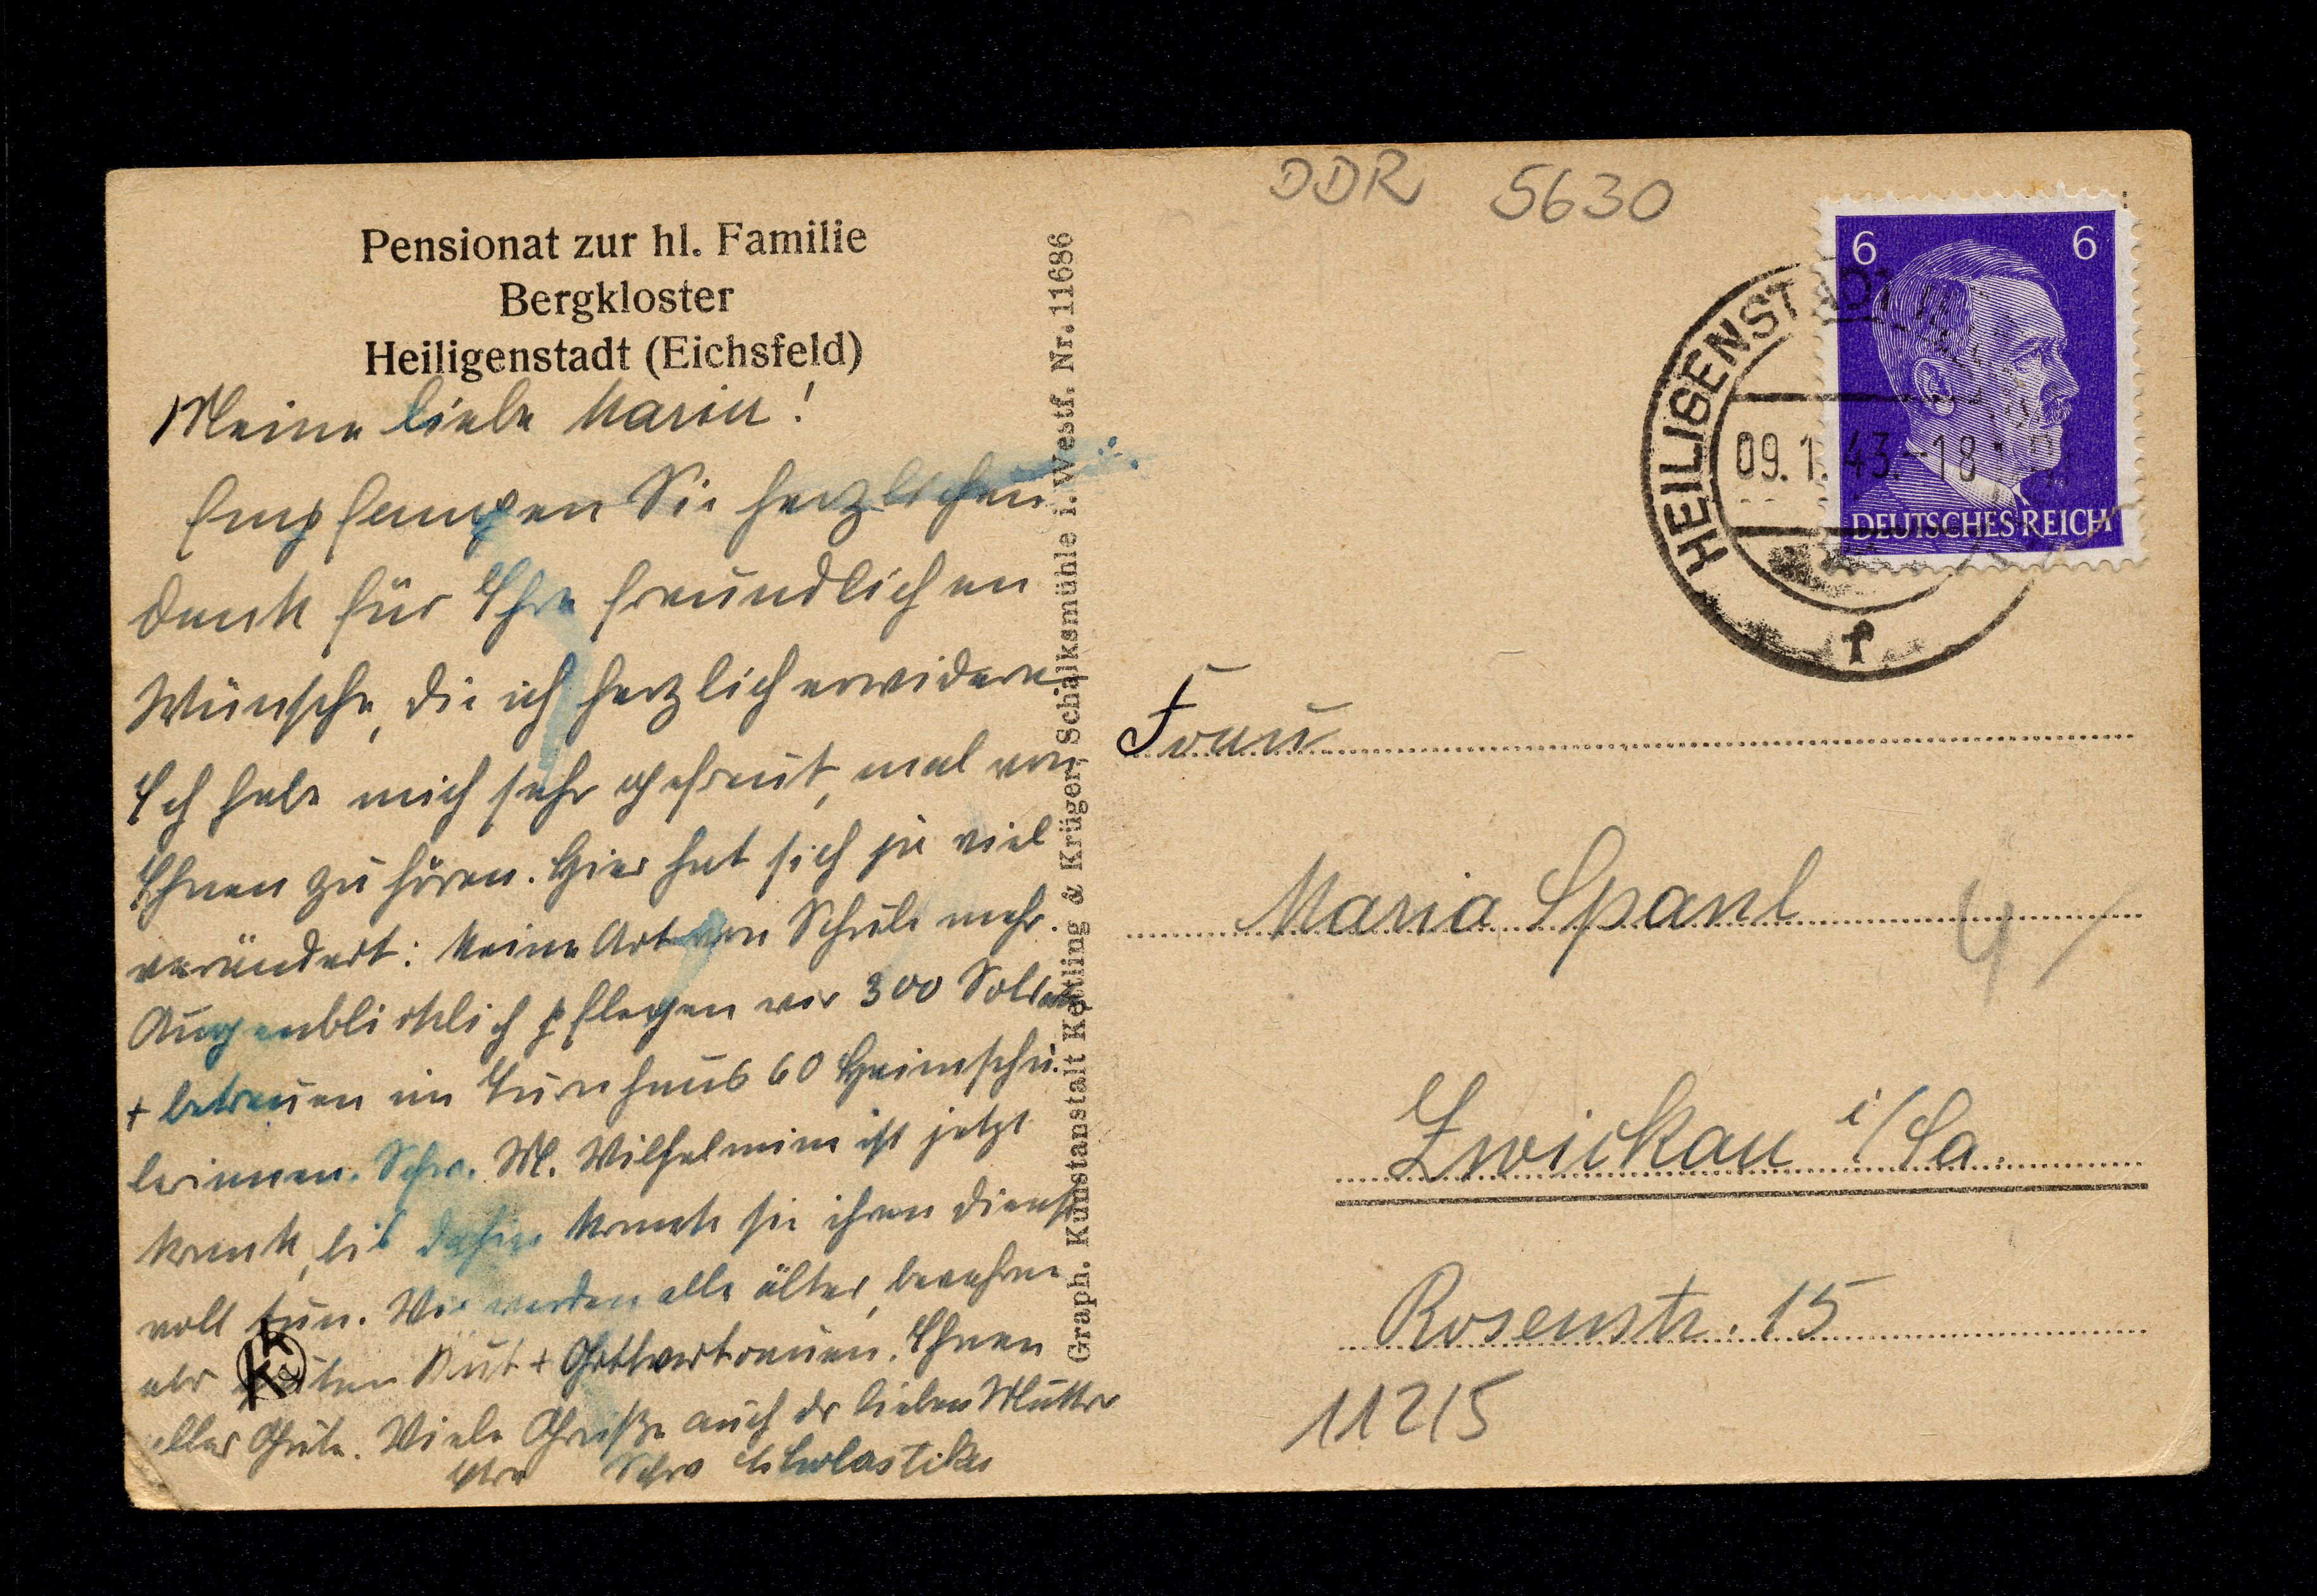 Pensionat zur hl. Familie
Bergkloster
Heiligenstadt (Eichsfeld)
Meine liebe Maria!
Empfangen Sie herzlichen
Dank für Ihre freundlichen
Wünsche, die ich herzlich erwidere
Ich habe mich sehr gefreut, mal von
Ihnen zu hören. Hier hat sich ja viel
verändert: keine Art von Schule mehr.
Augenblicklich pflegen wir 300 Soldaten
+ betreuen im Turnhaus 60 Heimschü-
lerinnen. Schw. M. Wilhelmine ist jetzt
krank, bis dahin konnte sie ihren Dienst
voll tun. Wir werden alle älter, bewahren
aber guten Mut + Gottvertrauen. Ihnen
alles Gute. Viele Grüße auch der lieben Mutter
Ihre Schw. Scholastika
Graph. Kunstanstalt Kettling & Krüger, Schalksmühle i. Westf. Nr. 11686
DDR 5630
6 6
DEUTSCHES REICH
HEILIGENSTADT
09.1.43.-18
Frau
Maria Spanl
4/
Zwickau i/Sa.
Rosenstr. 15
11215